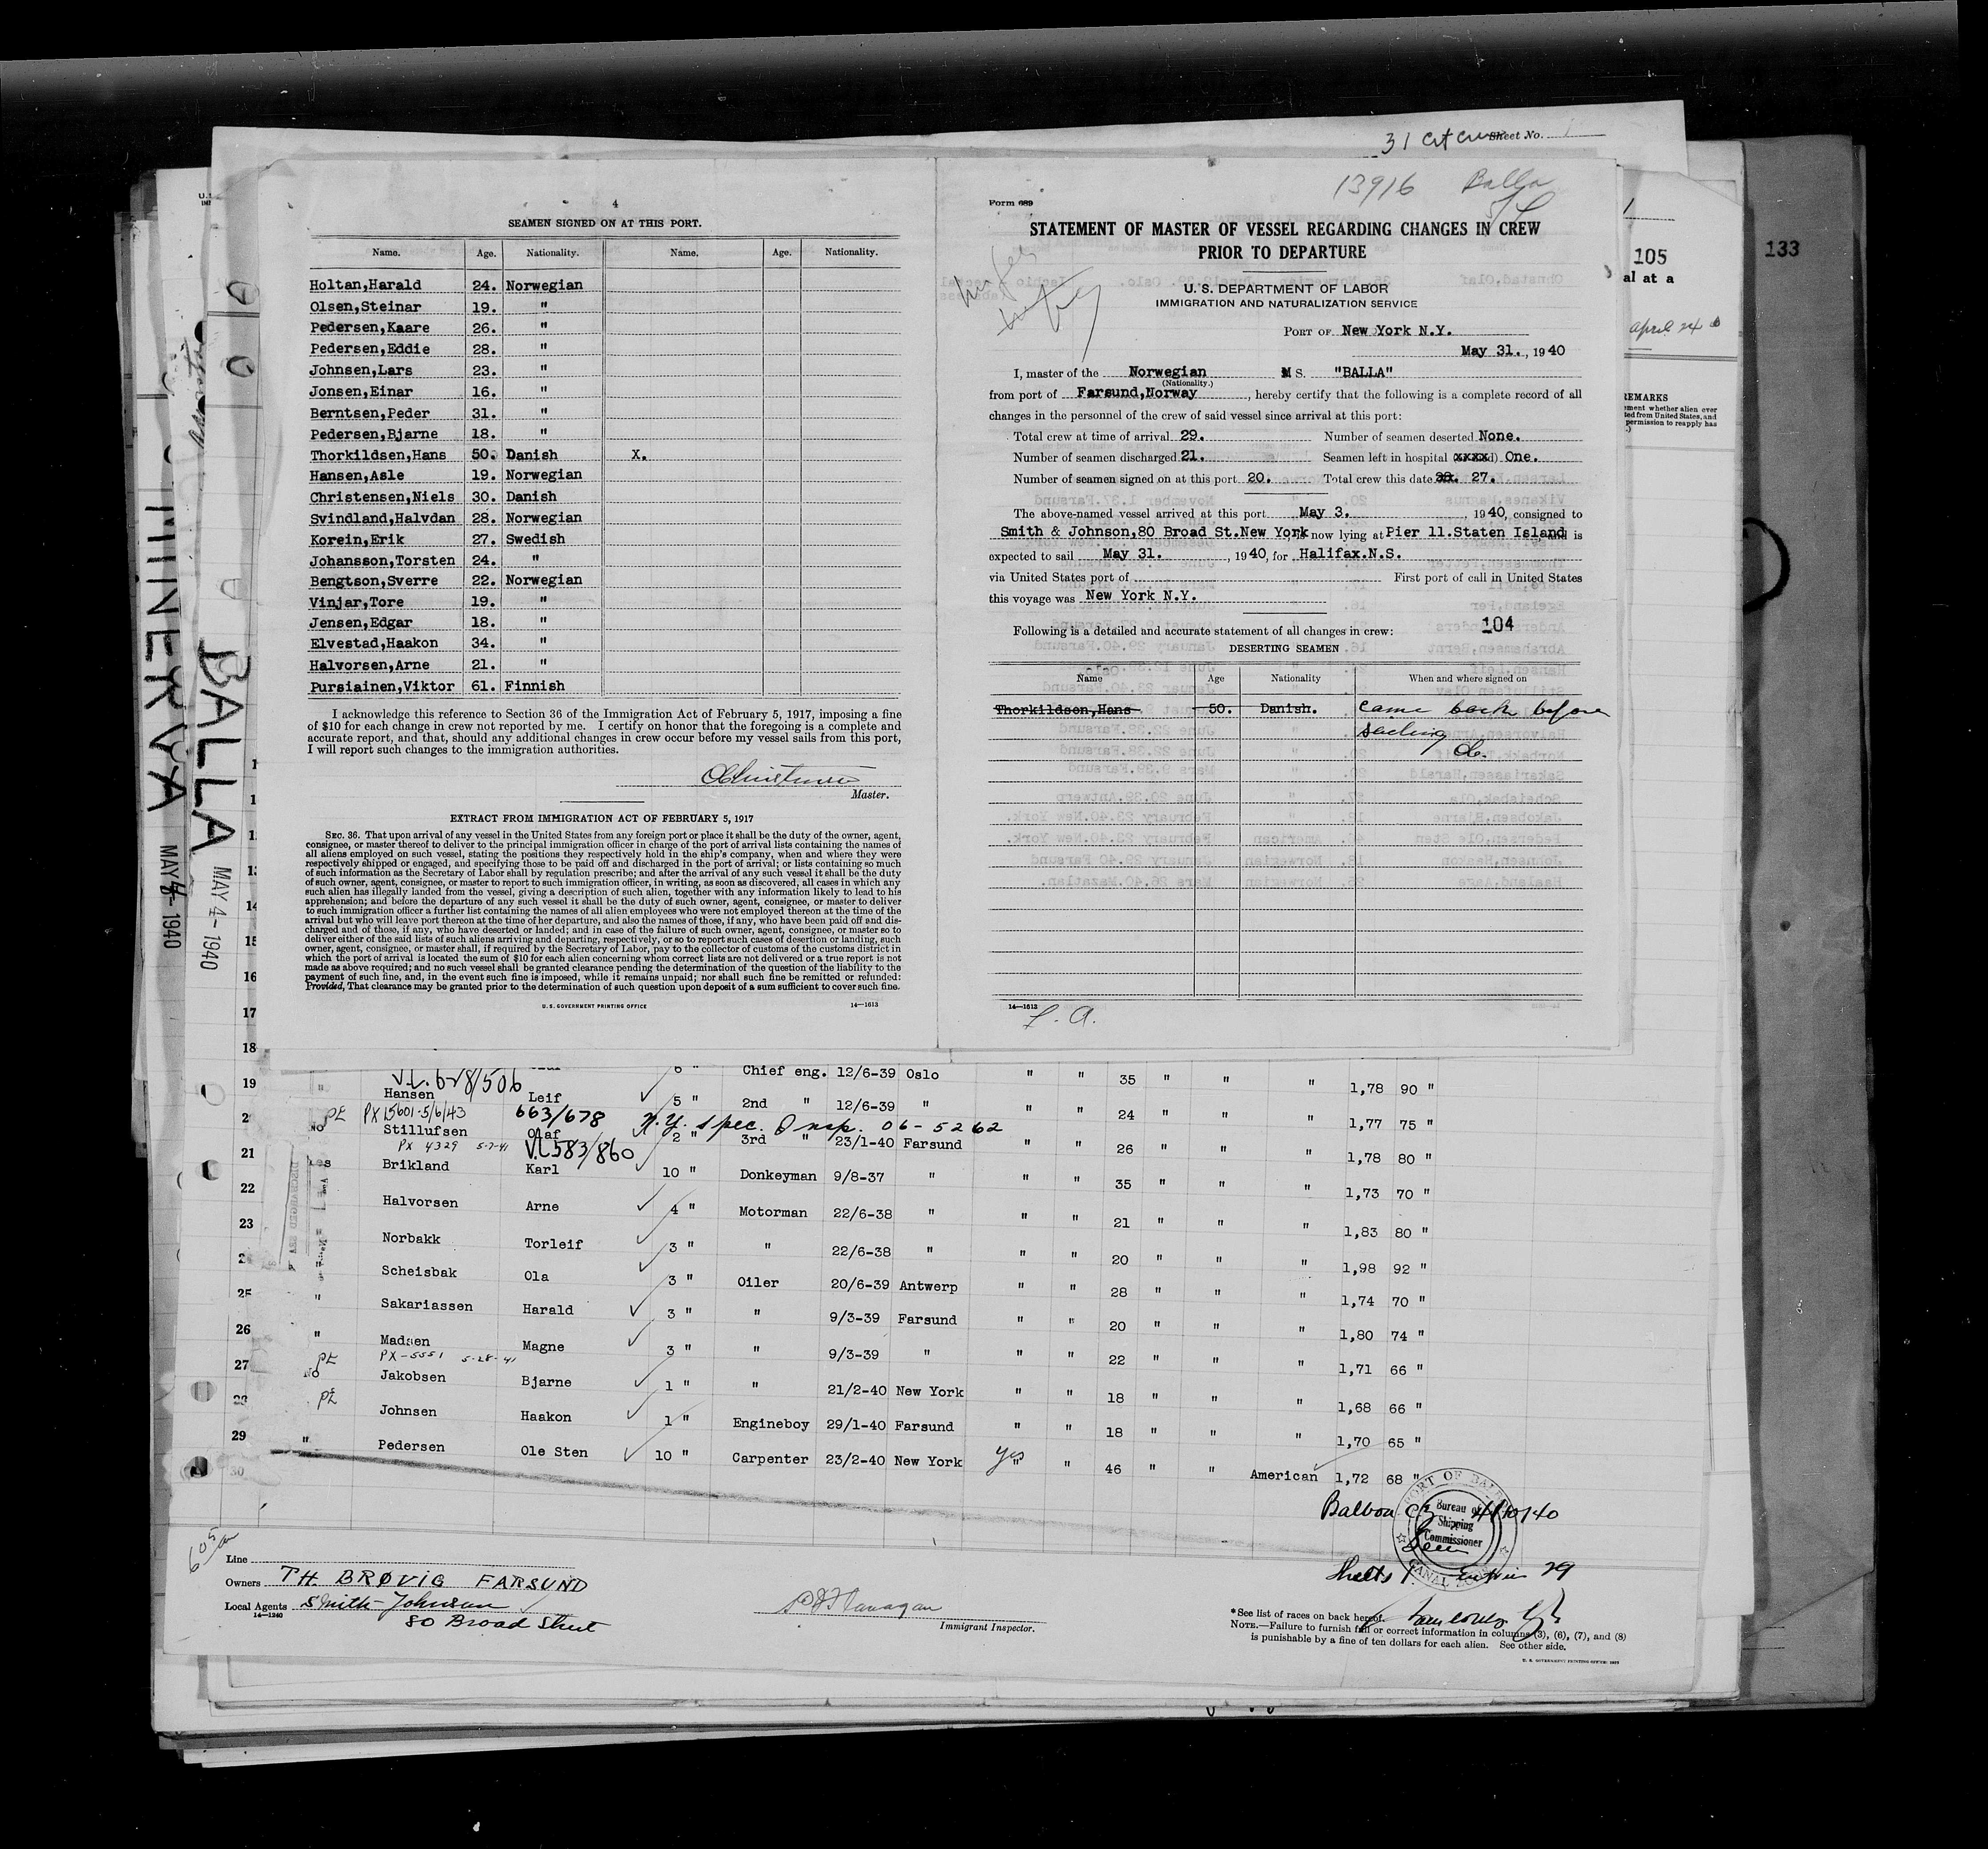 31 Sheet No.
133
105
al at a
april 24
REMARKS
ment whether alien ever
ted from United States, and
permission to reapply has
MINERVA MAY 4- 1940
BALLA MAY 4- 1940
4
SEAMEN SIGNED ON AT THIS PORT.
Name. Age. Nationality. Name. Age. Nationality.
Holtan,Harald 24. Norwegian
Olsen,Steinar 19. "
Pedersen,Kaare 26. "
Pedersen,Eddie 28. "
Johnsen,Lars 23. "
Jonsen,Einar 16. "
Berntsen,Peder 31. "
Pedersen,Bjarne 18. "
Thorkildsen,Hans 50. Danish X.
Hansen,Asle 19. Norwegian
Christensen,Niels 30. Danish
Svindland,Halvdan 28. Norwegian
Korein,Erik 27. Swedish
Johansson,Torsten 24. "
Bengtson,Sverre 22. Norwegian
Vinjar,Tore 19. "
Jensen,Edgar 18. "
Elvestad,Haakon 34. "
Halvorsen,Arne 21. "
Pursiainen,Viktor 61. Finnish
I acknowledge this reference to Section 36 of the Immigration Act of February 5, 1917, imposing a fine
of $10 for each change in crew not reported by me. I certify on honor that the foregoing is a complete and
accurate report, and that, should any additional changes in crew occur before my vessel sails from this port,
I will report such changes to the immigration authorities.
Master.
EXTRACT FROM IMMIGRATION ACT OF FEBRUARY 5, 1917
SEC. 36. That upon arrival of any vessel in the United States from any foreign port or place it shall be the duty of the owner, agent,
consignee, or master thereof to deliver to the principal immigration officer in charge of the port of arrival lists containing the names of
all aliens employed on such vessel, stating the positions they respectively hold in the ship's company, when and where they were
respectively shipped or engaged, and specifying those to be paid off and discharged in the port of arrival; or lists containing so much
of such information as the Secretary of Labor shall by regulation prescribe; and after the arrival of any such vessel it shall be the duty
of such owner, agent, consignee, or master to report to such immigration officer, in writing, as soon as discovered, all cases in which any
such alien has illegally landed from the vessel, giving a description of such alien, together with any information likely to lead to his
apprehension; and before the departure of any such vessel it shall be the duty of such owner, agent, consignee, or master to deliver
to such immigration officer a further list containing the names of all alien employees who were not employed thereon at the time of the
arrival but who will leave port thereon at the time of her departure, and also the names of those, if any, who have been paid off and dis-
charged and of those, if any, who have deserted or landed; and in case of the failure of such owner, agent, consignee, or master so to
deliver either of the said lists of such aliens arriving and departing, respectively, or so to report such cases of desertion or landing, such
owner, agent, consignee, or master shall, if required by the Secretary of Labor, pay to the collector of customs of the customs district in
which the port of arrival is located the sum of $10 for each alien concerning whom correct lists are not delivered or a true report is not
made as above required; and no such vessel shall be granted clearance pending the determination of the question of the liability to the
payment of such fine, and, in the event such fine is imposed, while it remains unpaid; nor shall such fine be remitted or refunded:
Provided, That clearance may be granted prior to the determination of such question upon deposit of a sum sufficient to cover such fine.
U. S. GOVERNMENT PRINTING OFFICE 14—1613
13916 Balla
Form 689
STATEMENT OF MASTER OF VESSEL REGARDING CHANGES IN CREW
PRIOR TO DEPARTURE
U. S. DEPARTMENT OF LABOR
IMMIGRATION AND NATURALIZATION SERVICE
PORT OF New York N.Y.
May 31., 1940
I, master of the Norwegian M S. "BALLA"
(Nationality.)
from port of Farsund,Norway, hereby certify that the following is a complete record of all
changes in the personnel of the crew of said vessel since arrival at this port:
Total crew at time of arrival 29. Number of seamen deserted None.
Number of seamen discharged 21. Seamen left in hospital (xxxxd) One.
Number of seamen signed on at this port 20. Total crew this date 28. 27.
The above-named vessel arrived at this port May 3., 1940, consigned to
Smith & Johnson,80 Broad St.New York now lying at Pier 11.Staten Island and is
expected to sail May 31., 1940, for Halifax.N.S.
via United States port of First port of call in United States
this voyage was New York N.Y.
Following is a detailed and accurate statement of all changes in crew: 104
DESERTING SEAMEN
Name Age Nationality When and where signed on
Thorkildsen,Hans 50. Danish. came back before
sailing
14—1613
L. A.
19 " 6 " Chief eng. 12/6-39 Oslo " " 35 " " " 1,78 90 "
V.L. 628/506
Hansen Leif 5 " 2nd " 12/6-39 " " " 24 " " " 1,77 75 "
PX 15601-5/6/43 663/678 N.Y. spec. Insp. 06-5262
No Stillufsen Olaf 2 " 3rd " 23/1-40 Farsund " " 26 " " " 1,78 80 "
PX 4329 5-7-41 VL583/860
21 Brikland Karl 10 " Donkeyman 9/8-37 " " " 35 " " " 1,73 70 "
22 Halvorsen Arne 4 " Motorman 22/6-38 " " " 21 " " " 1,83 80 "
23 Norbakk Torleif 3 " " 22/6-38 " " " 20 " " " 1,98 92 "
Scheisbak Ola 3 " Oiler 20/6-39 Antwerp " " 28 " " " 1,74 70 "
25 " Sakariassen Harald 3 " " 9/3-39 Farsund " " 20 " " " 1,80 74 "
26 " Madsen Magne 3 " " 9/3-39 " " " 22 " " " 1,71 66 "
PX-5551 5-28-41
27 No Jakobsen Bjarne 1 " " 21/2-40 New York " " 18 " " " 1,68 66 "
28 Johnsen Haakon 1 " Engineboy 29/1-40 Farsund " " 18 " " " 1,70 65 "
29 " Pedersen Ole Sten 10 " Carpenter 23/2-40 New York yes " " 46 " " American 1,72 68 "
30
Balboa CZ 4/10/40
PORT OF BALBOA
Bureau of
Shipping
Commissioner
CANAL ZONE
Sheets 1. 29
Line
Owners TH. BRØVIG FARSUND
Local Agents Smith-Johnson
14—1240
80 Broad Street
Immigrant Inspector.
*See list of races on back hereof.
NOTE.—Failure to furnish full or correct information in columns (3), (6), (7), and (8)
is punishable by a fine of ten dollars for each alien. See other side.